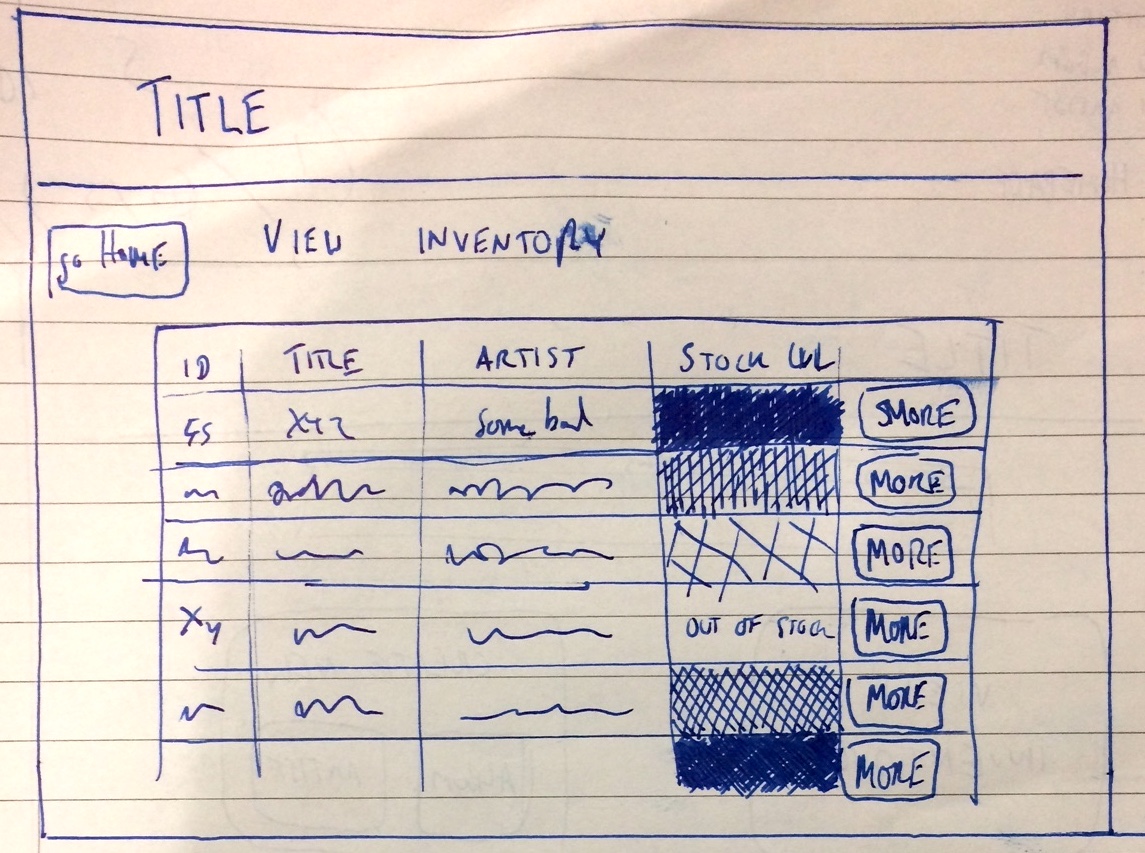 TITLE
GO HOME
VIEW INVENTORY
ID TITLE ARTIST STOCK LVL
55 XYZ Some band MORE
MORE
MORE
XY OUT OF STOCK MORE
MORE
MORE